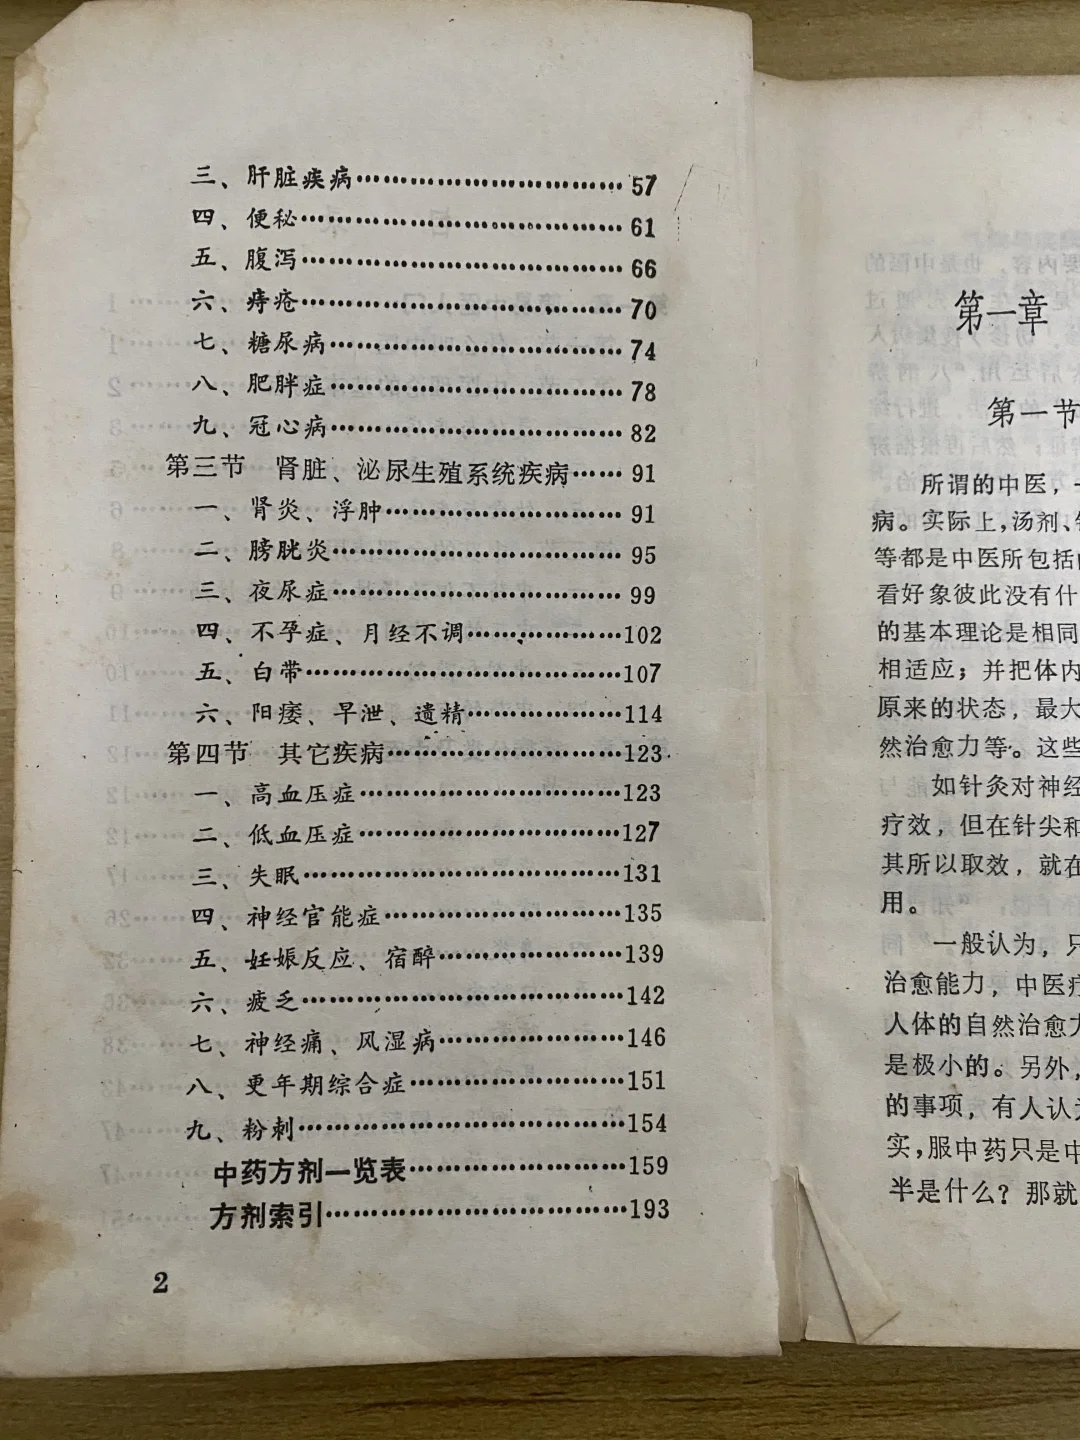 三、肝脏疾病……………………57
四、便秘……………………61
五、腹泻……………………66
六、痔疮……………………70
七、糖尿病……………………74
八、肥胖症……………………78
九、冠心病……………………82
第三节 肾脏、泌尿生殖系统疾病……91
一、肾炎、浮肿……………………91
二、膀胱炎……………………95
三、夜尿症……………………99
四、不孕症、月经不调……………102
五、白带……………………107
六、阳痿、早泄、遗精……………114
第四节 其它疾病……………………123
一、高血压症……………………123
二、低血压症……………………127
三、失眠……………………131
四、神经官能症……………………135
五、妊娠反应、宿醉……………139
六、疲乏……………………142
七、神经痛、风湿病……………146
八、更年期综合症……………151
九、粉刺……………………154
中药方剂一览表……………159
方剂索引……………………193
2
第一章
第一节
所谓的中医，
病。实际上，汤剂、
等都是中医所包括
看好象彼此没有什
的基本理论是相同
相适应；并把体内
原来的状态，最大
然治愈力等。这些
如针灸对神经
疗效，但在针尖和
其所以取效，就在
用。
一般认为，只
治愈能力，中医疗
人体的自然治愈力
是极小的。另外，
的事项，有人认为
实，服中药只是中
半是什么？那就